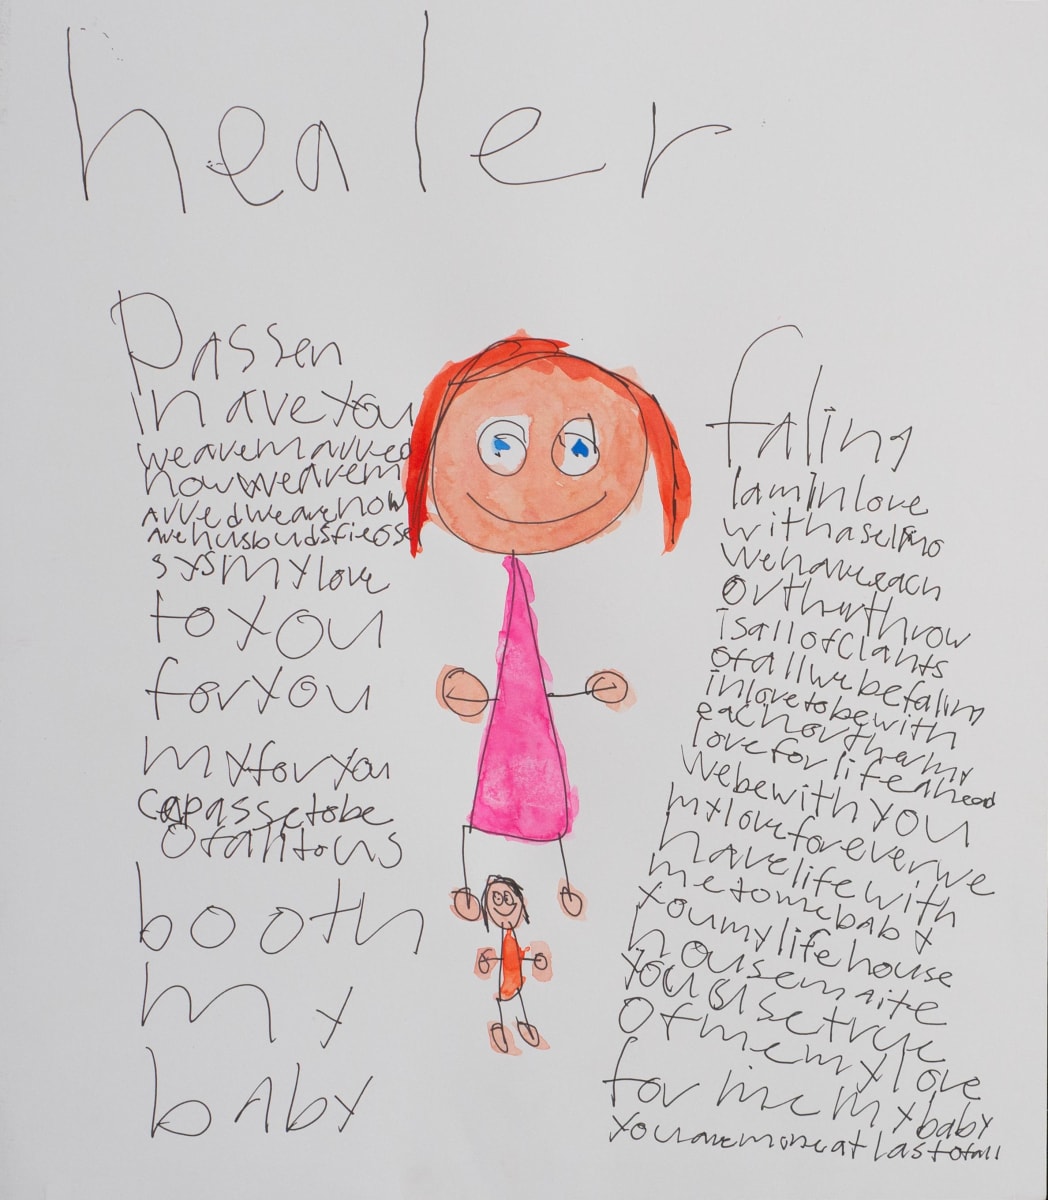 healer
Passen
in aveyou
wearemarred
nowwearem
arredwearenow
arehusbudsfiesse
sysmylove
toyou
foryou
myforyou
capassetobe
ofalltous
booth
my
baby
faling
IamInlove
withaselfno
wehaveeach
ortherthrow
isallofclants
ofallwebefalim
inlovetobewith
eachorthermy
loveforlifeahead
webewithyou
myloveforeverwe
havelifewith
metomebaby
youmylifehouse
housemaite
setrue
ofmemylove
for me mybaby
youaremoreatlastofall